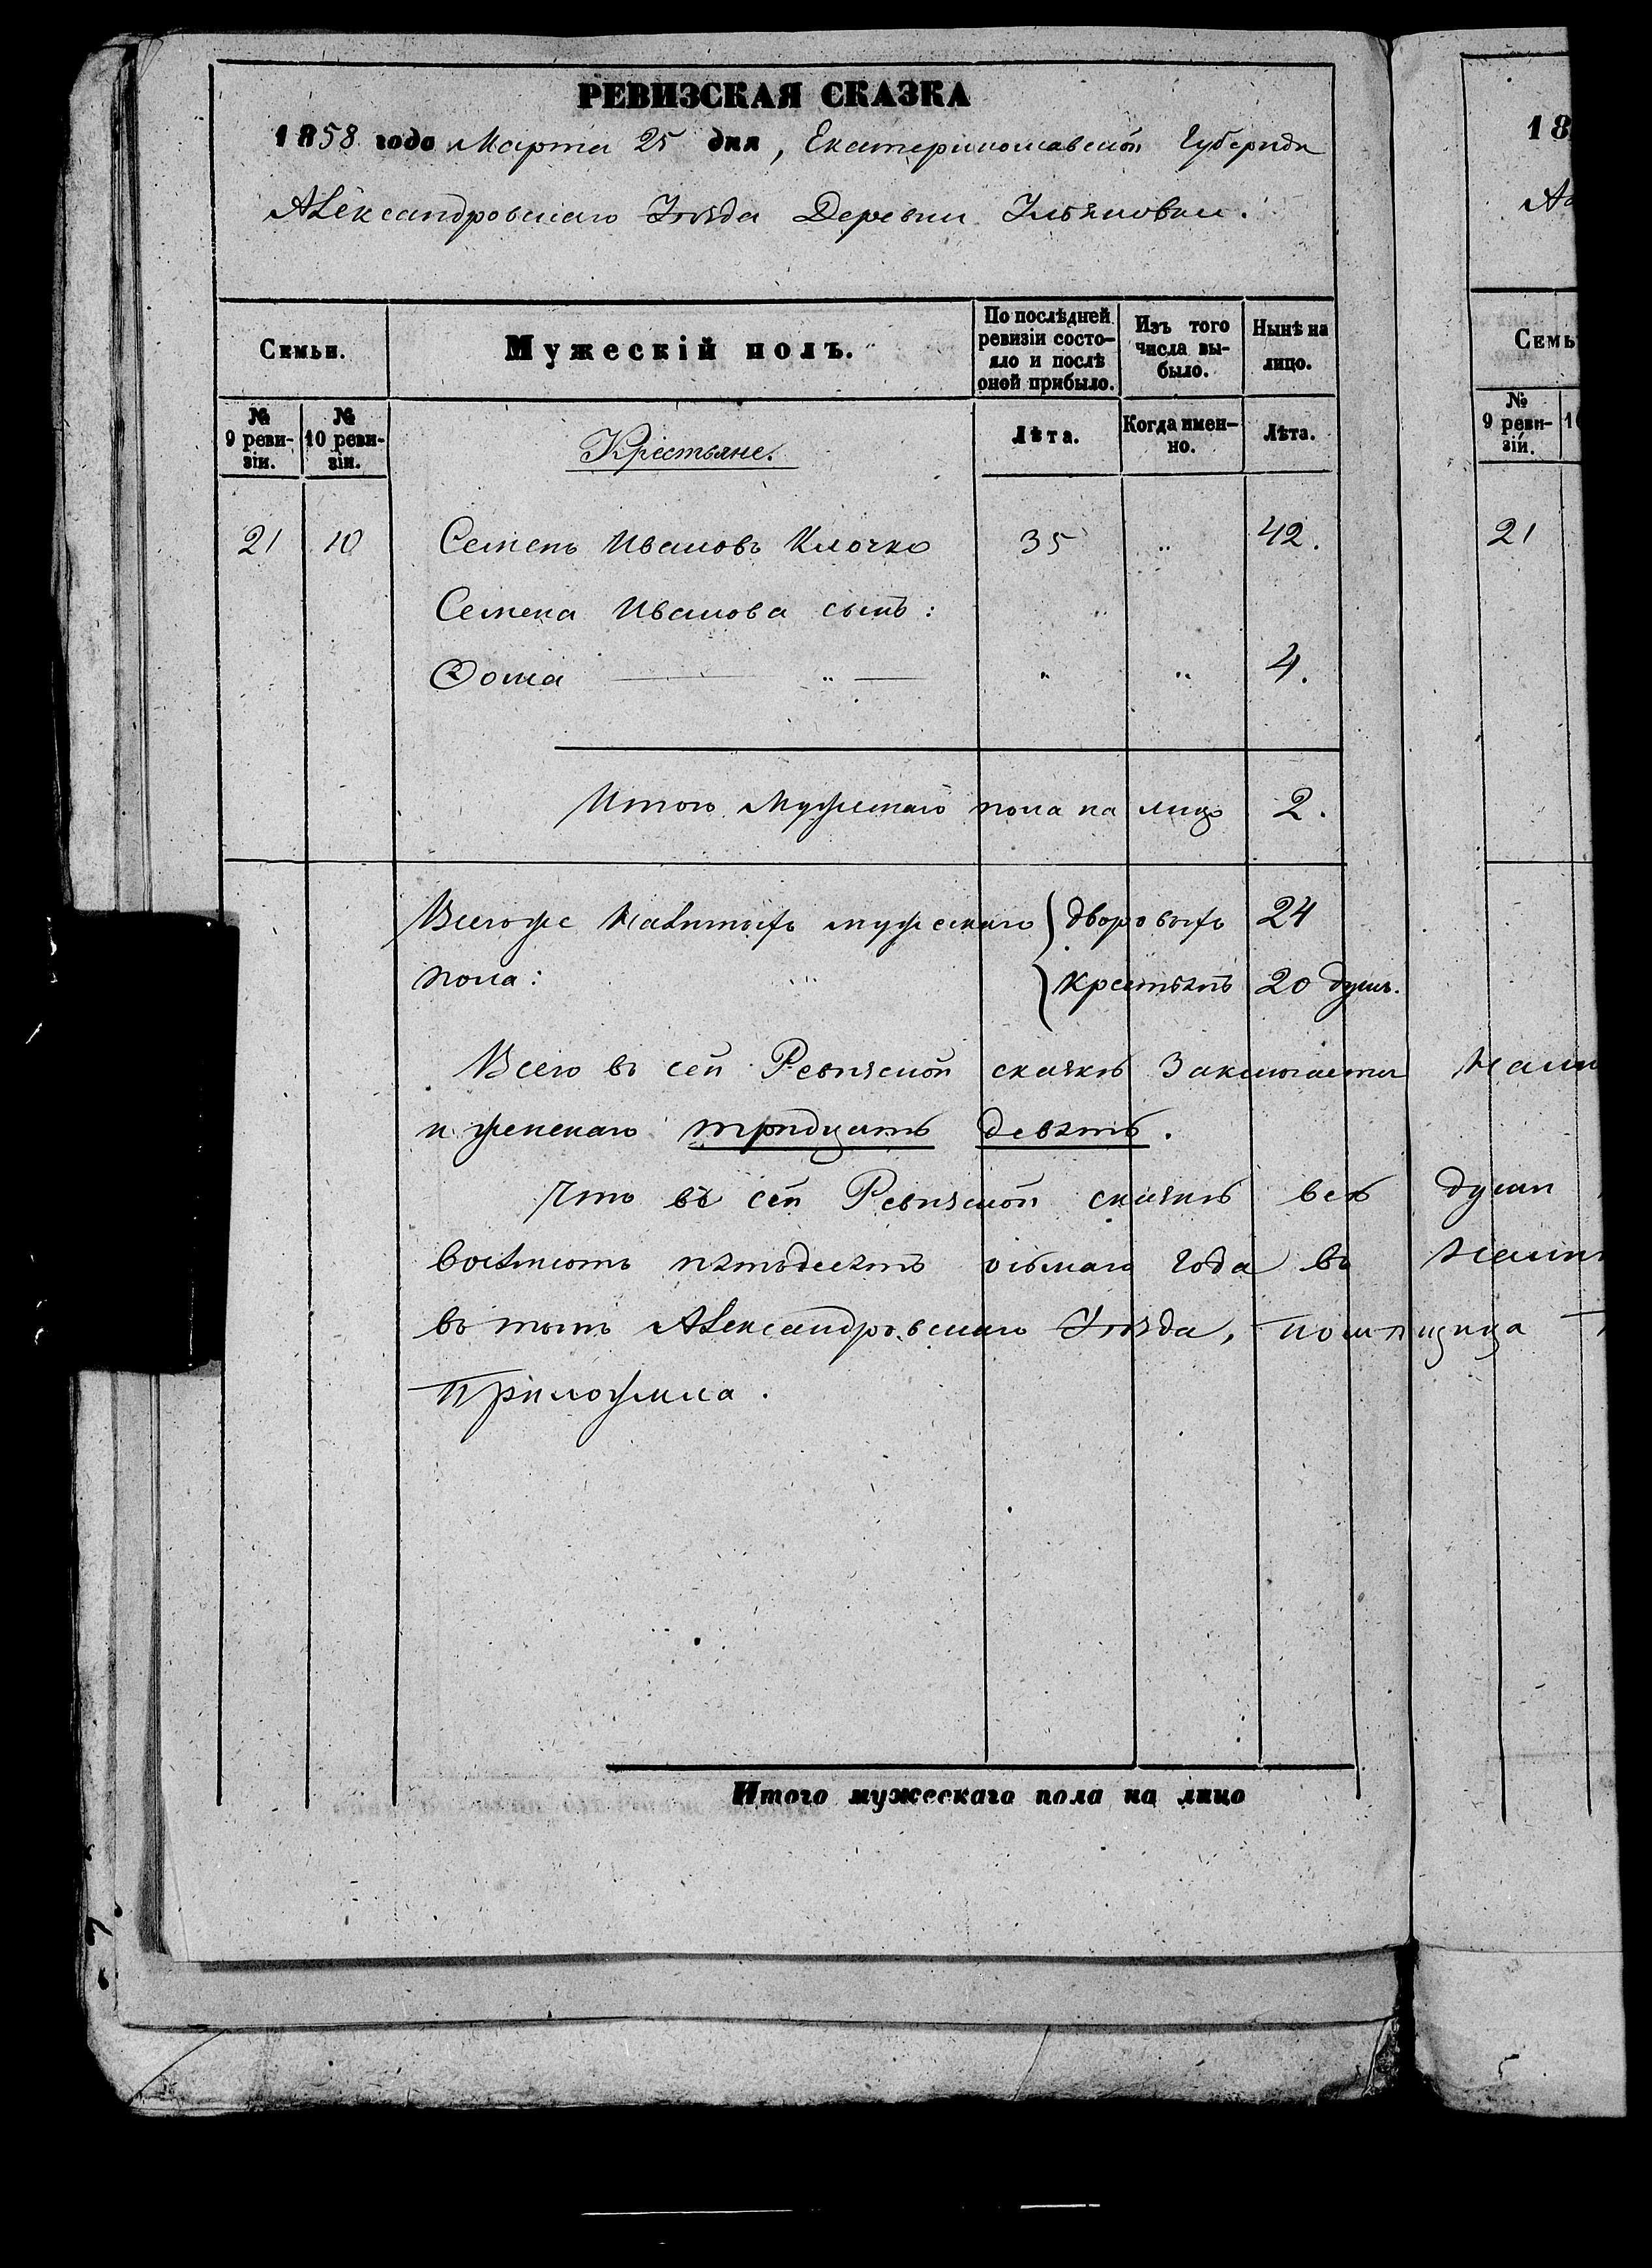 РЕВИЗСКАЯ СКАЗКА
1858 года Марта 25 дня, Екатеринославской Губерніи
Александровскаго Уѣзда Деревни Ульяновки.
Семьи.
Мужескій полъ.
По послѣдней ревизіи состояло и послѣ оной прибыло.
Изъ того числа выбыло.
Нынѣ на лицо.
№ 9 ревизіи.
№ 10 ревизіи.
Крестьяне.
Лѣта.
Когда именно.
Лѣта.
21 10 Семенъ Ивановъ Клочко 35 " 42.
Семена Иванова сынъ: "
Фома " " " 4.
Итого мужескаго пола на лицо 2.
Всего же налитыхъ мужескаго дворовыхъ 24
пола: " крестьянъ 20 душъ.
Всего въ сей Ревизской сказкѣ заключается
и женскаго тридцать девять.
Что въ сей Ревизской сказкѣ всѣ души
восьмсотъ пятьдесятъ осьмаго года въ
въ томъ Александровскаго Уѣзда, помѣщица
приложила.
Итого мужескаго пола на лицо
18
Семь
№ 9 ревизій.
21